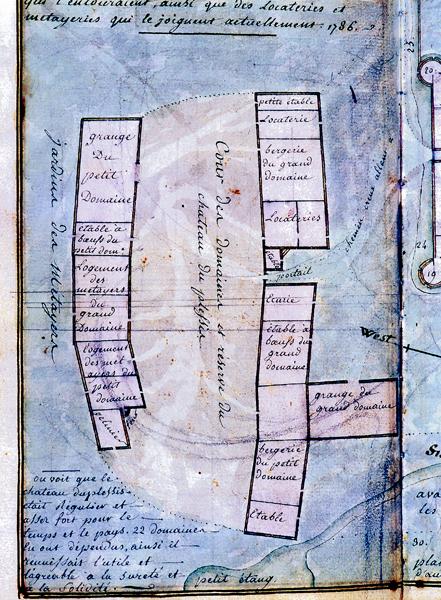 qui l'entouraient, ainsi que des Locateries et
metayeries qui le joignent actuellement. 1786.
petite étable
Locaterie
bergerie
du grand
domaine
Locateries
portail
Ecurie
étable a
bœufs du
grand
domaine
grange du
grand domaine
bergerie
du petit
domaine
Etable
grange
Du
petit
Domaine
etable à
bœufs du
petit dom.
Logement
des
metayers
du
grand
Domaine
logement
des met
ayers du
petit
domaine
jardins des Métayers
Cour des domaines et réserve du
chateau du plessis
chemin
West
20.
25
24
19
on voit que le
chateau duplessis
était Regulier et
assez fort pour le
temps et le pays. 22 domaines
en ont dépendus, ainsi il
reunissait l'utile et
lagreable a la Sureté et
a la Solidité.
petit étang.
ava
les
30.
plan